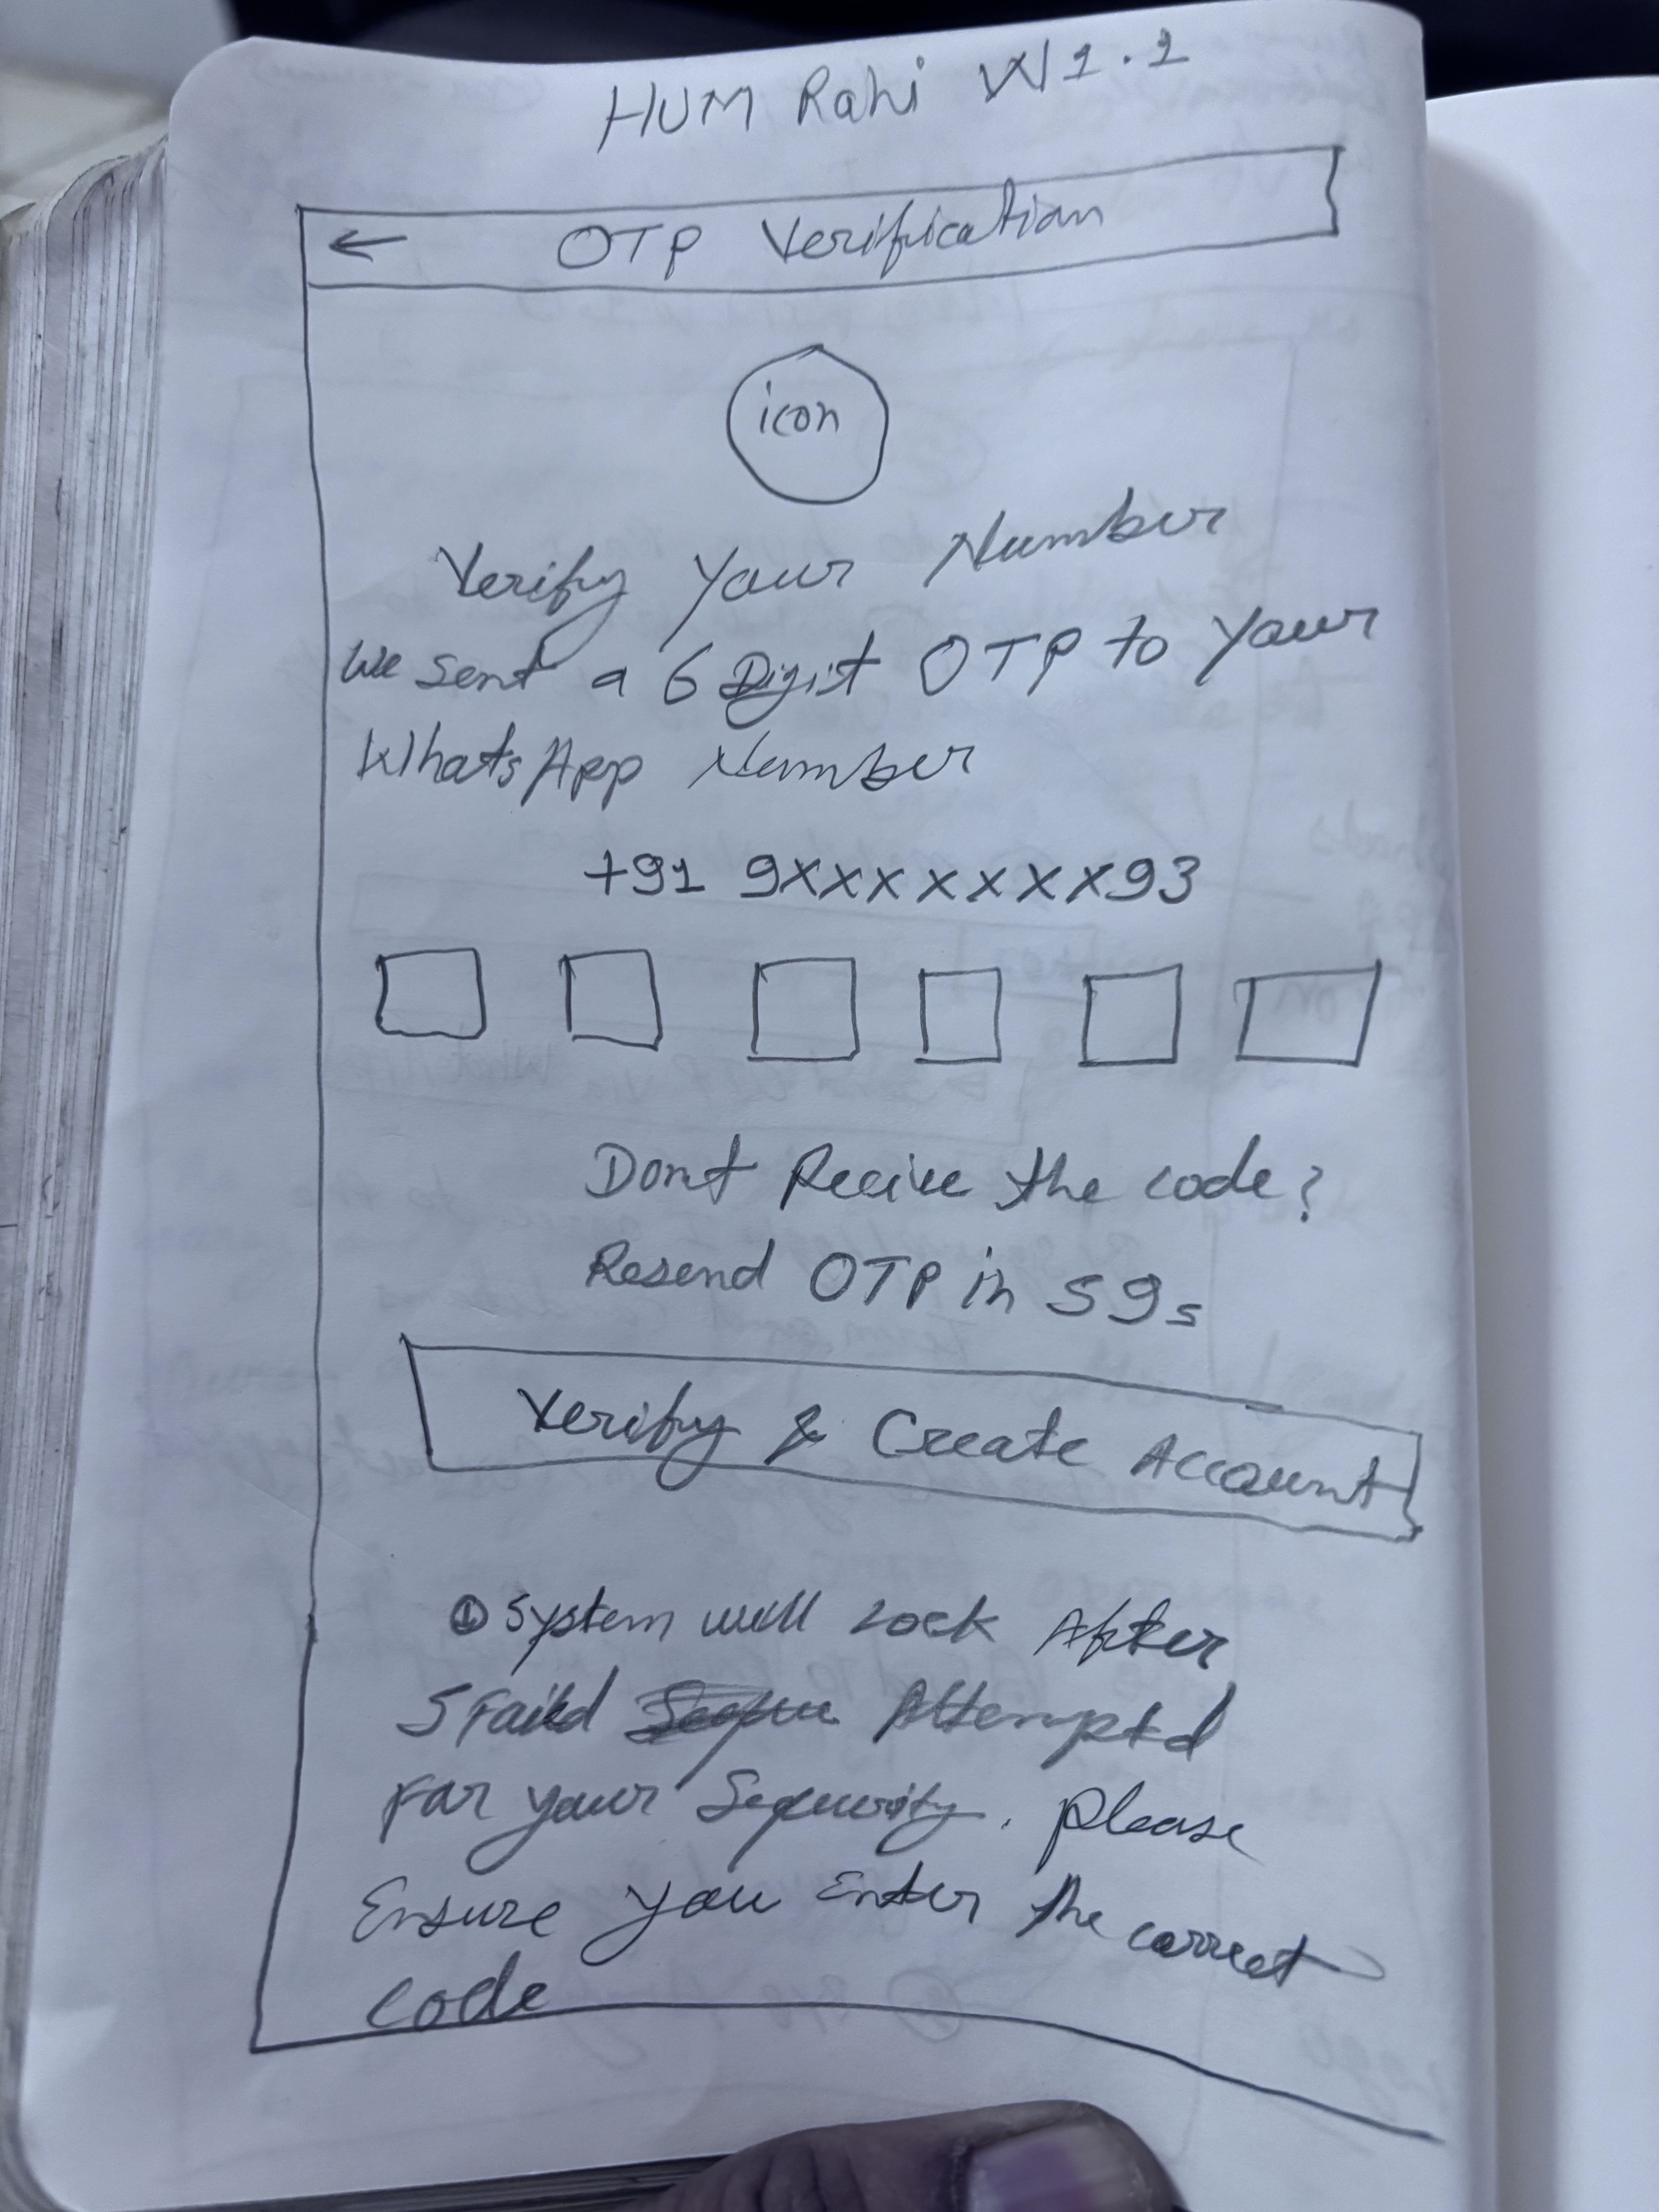 HUM Rahi W1.1
← OTP Verification
icon
Verify Your Number
We sent a 6 Digit OTP to your
WhatsApp Number
+91 9XXXXXXX93
Dont Recive the code?
Resend OTP in 59s
Verify & Create Account
System will Lock After
5 Faild Attemptd
For your Sequrity. please
Ensure you Enter the correct
code